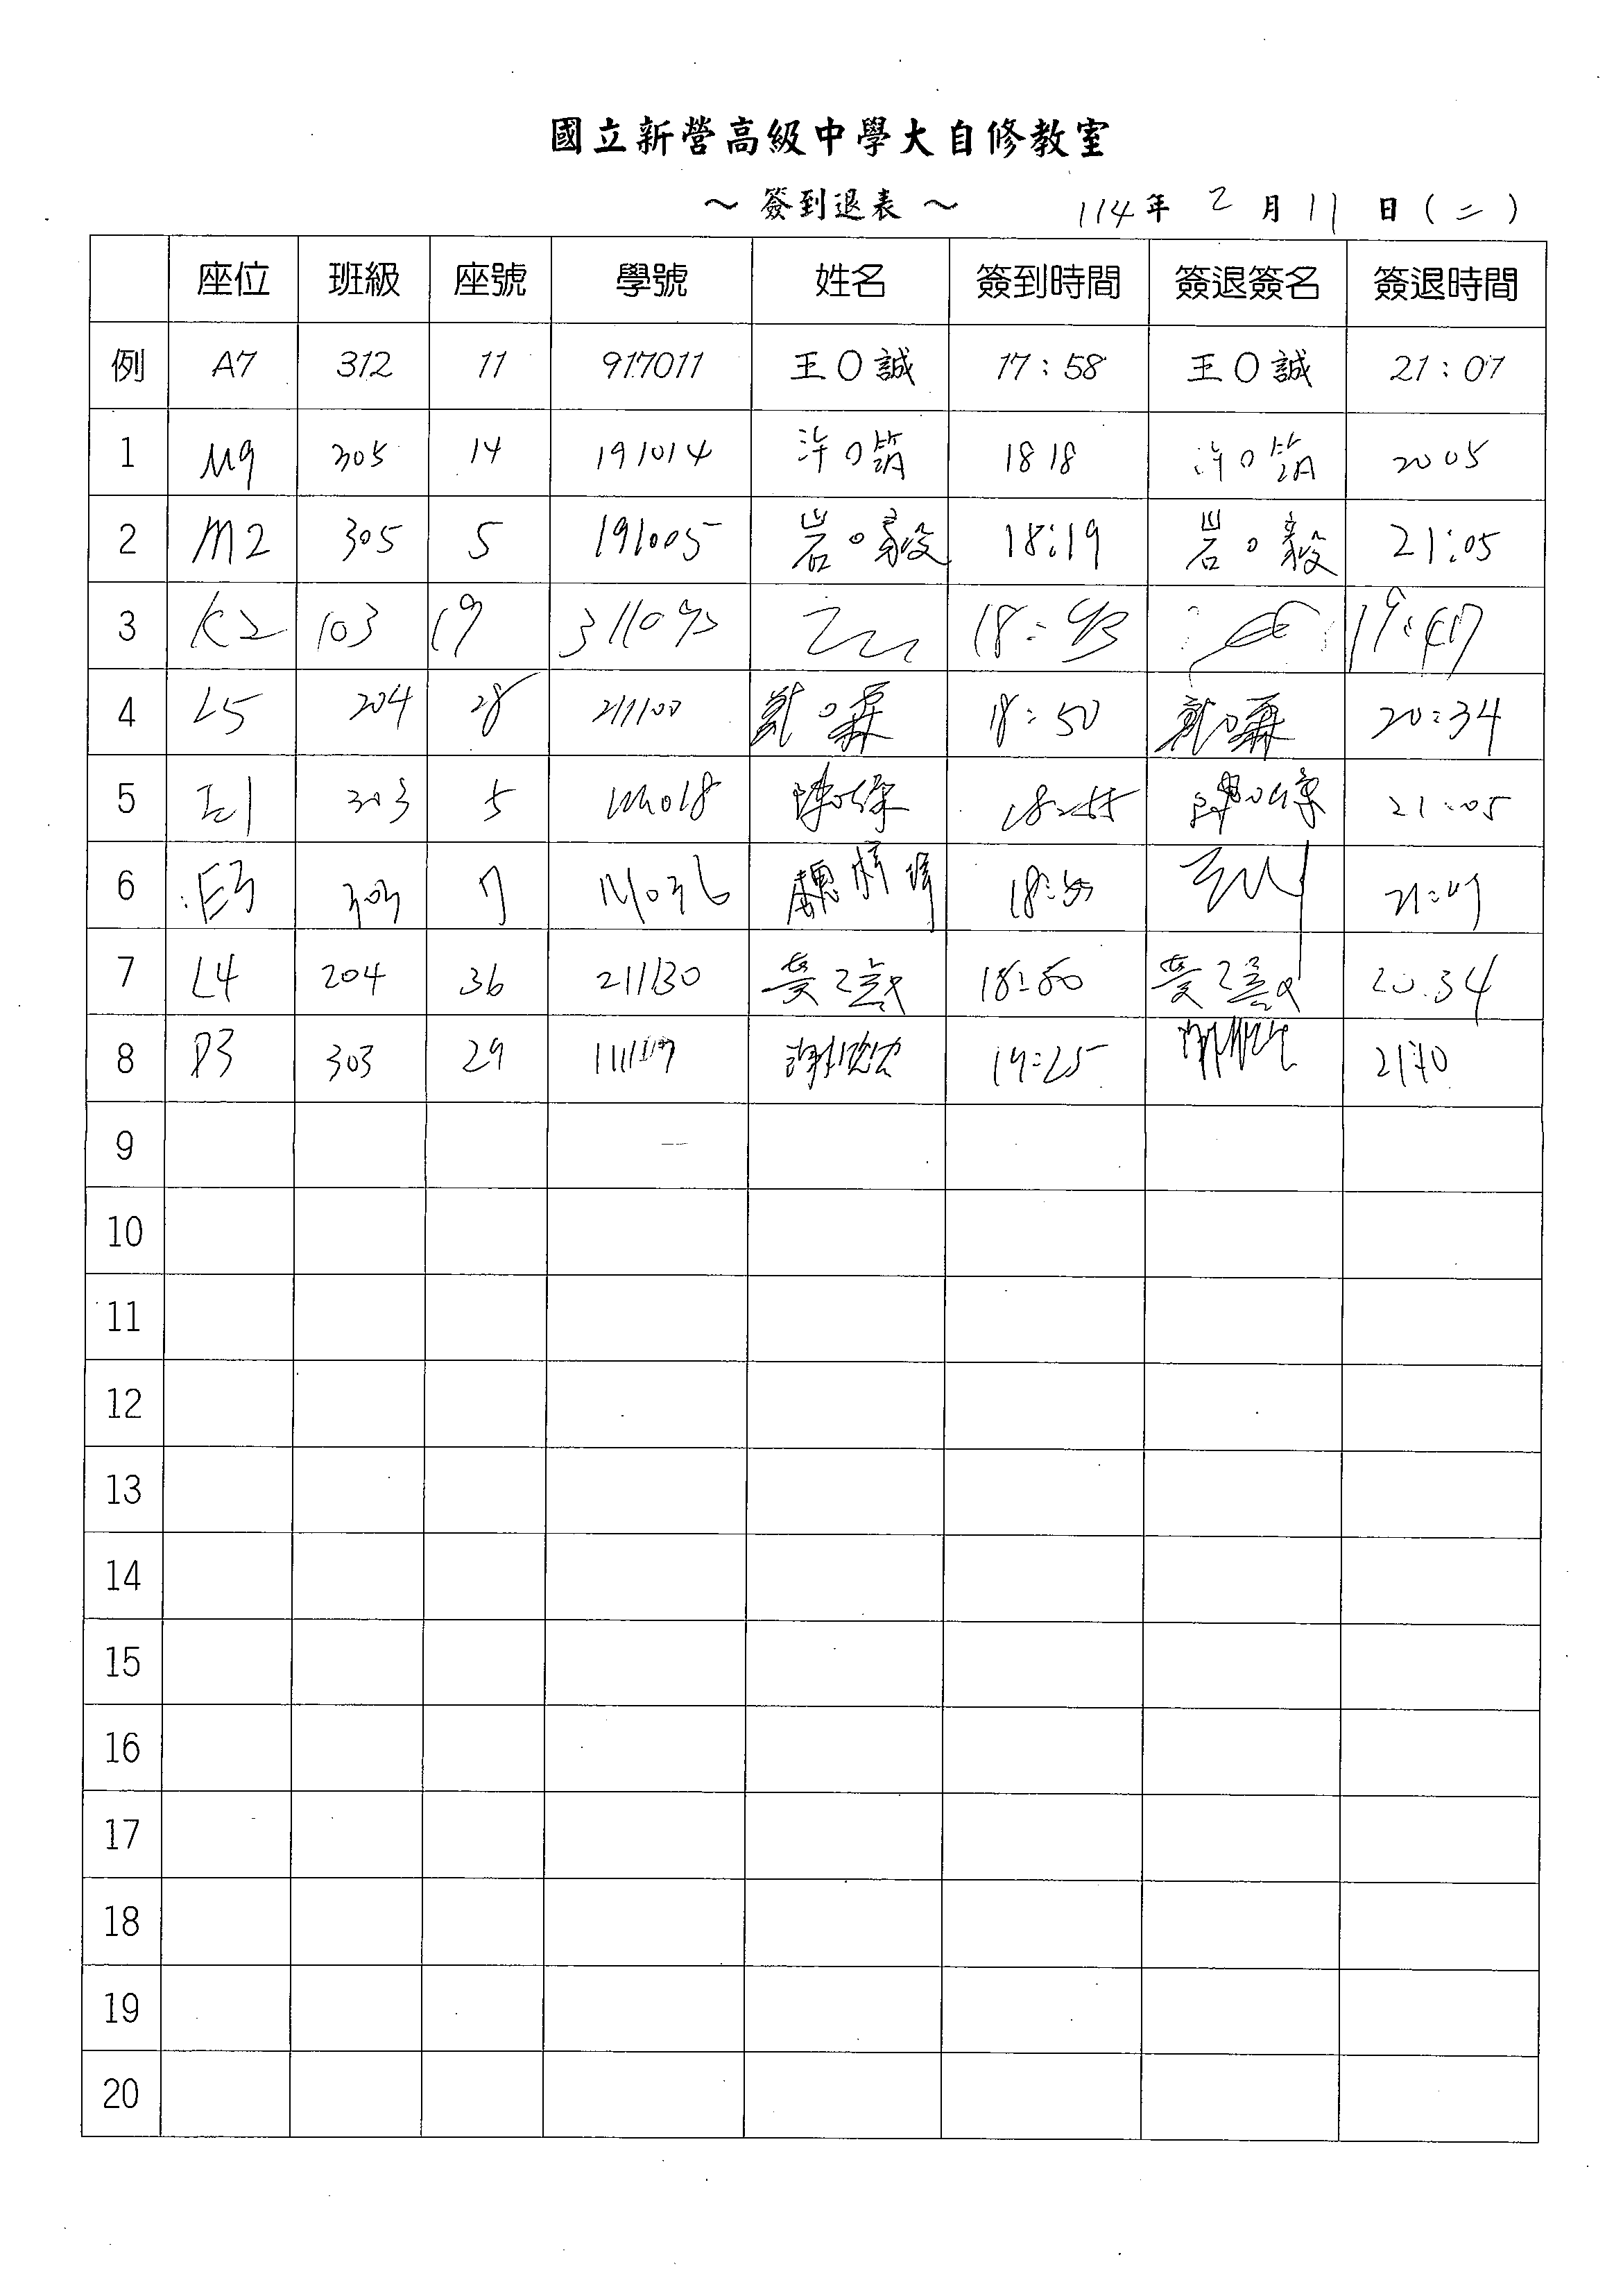 國立新營高級中學大自修教室
～ 簽到退表 ～ 114年 2 月 11 日 ( 二 )
座位 班級 座號 學號 姓名 簽到時間 簽退簽名 簽退時間
例 A7 312 11 917011 王〇誠 17:58 王〇誠 21:07
1 M9 305 14 191014 許〇筑 18 18 許〇筑 20 05
2 M2 305 5 191005 岩〇毅 18:19 岩〇毅 21:05
3 K2 103 19 18:43 19:47
4 L5 204 28 211100 18:50 20:34
5 303 5 18:55 21:05
6 E3 303 7 18:55
7 L4 204 36 211130 18:50 20:34
8 P3 303 29 19:25
9
10
11
12
13
14
15
16
17
18
19
20